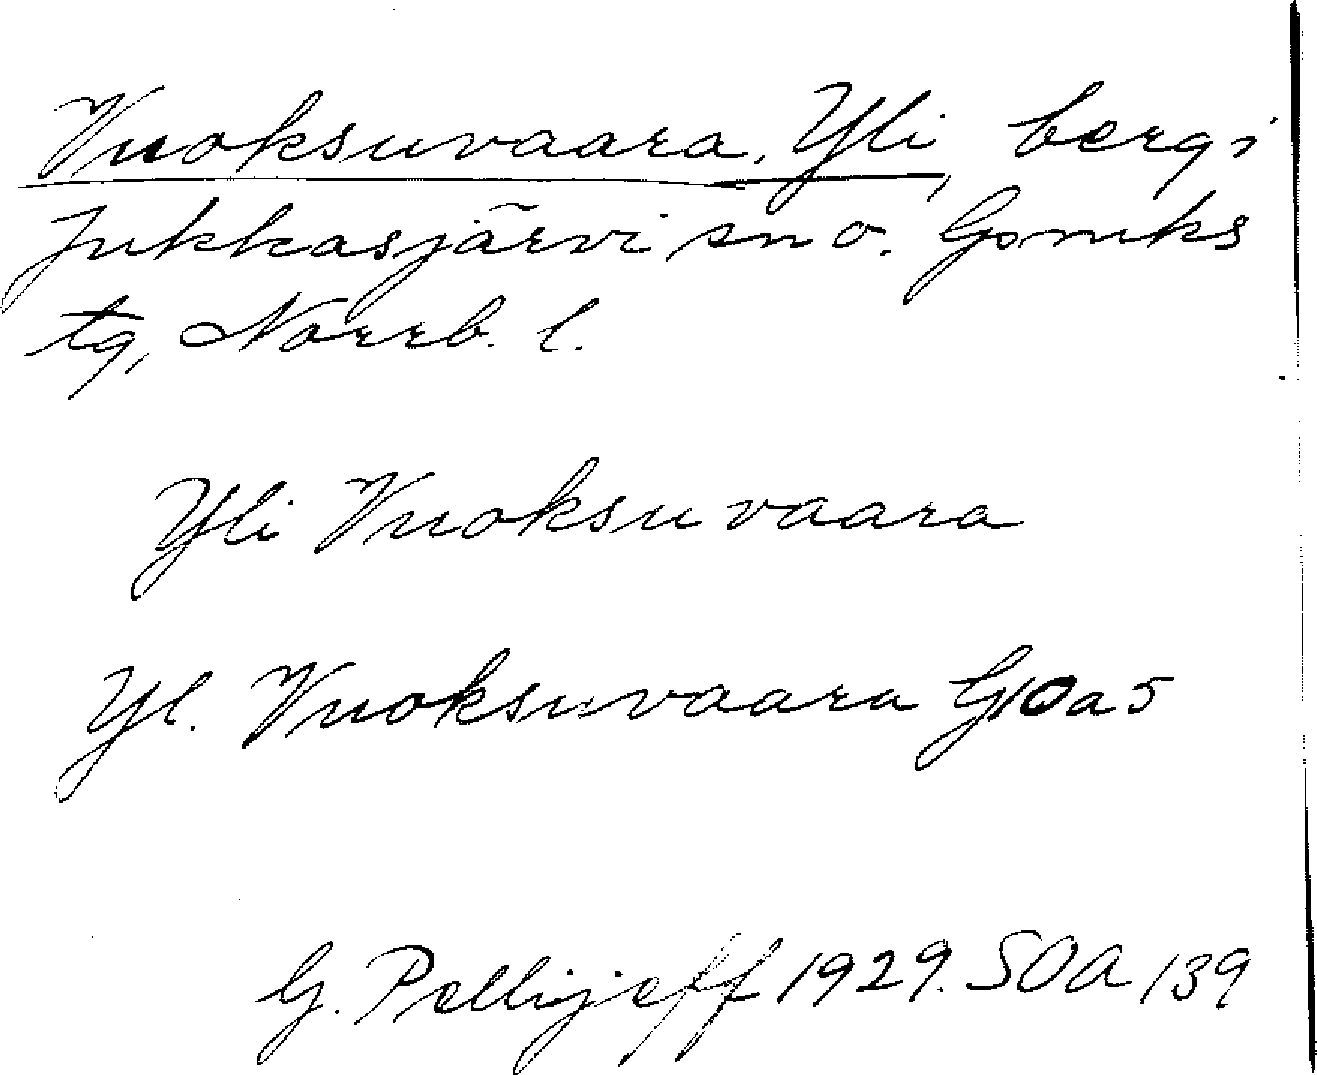 Vuoksuvaara, Yli, berg i
Jukkasjärvi sn o. Gpmks
tg, Norrb. l.
Yli Vuoksuvaara
Yl. Vuoksuvaara G10a5
G. Pellijeff 1929. SOA 139